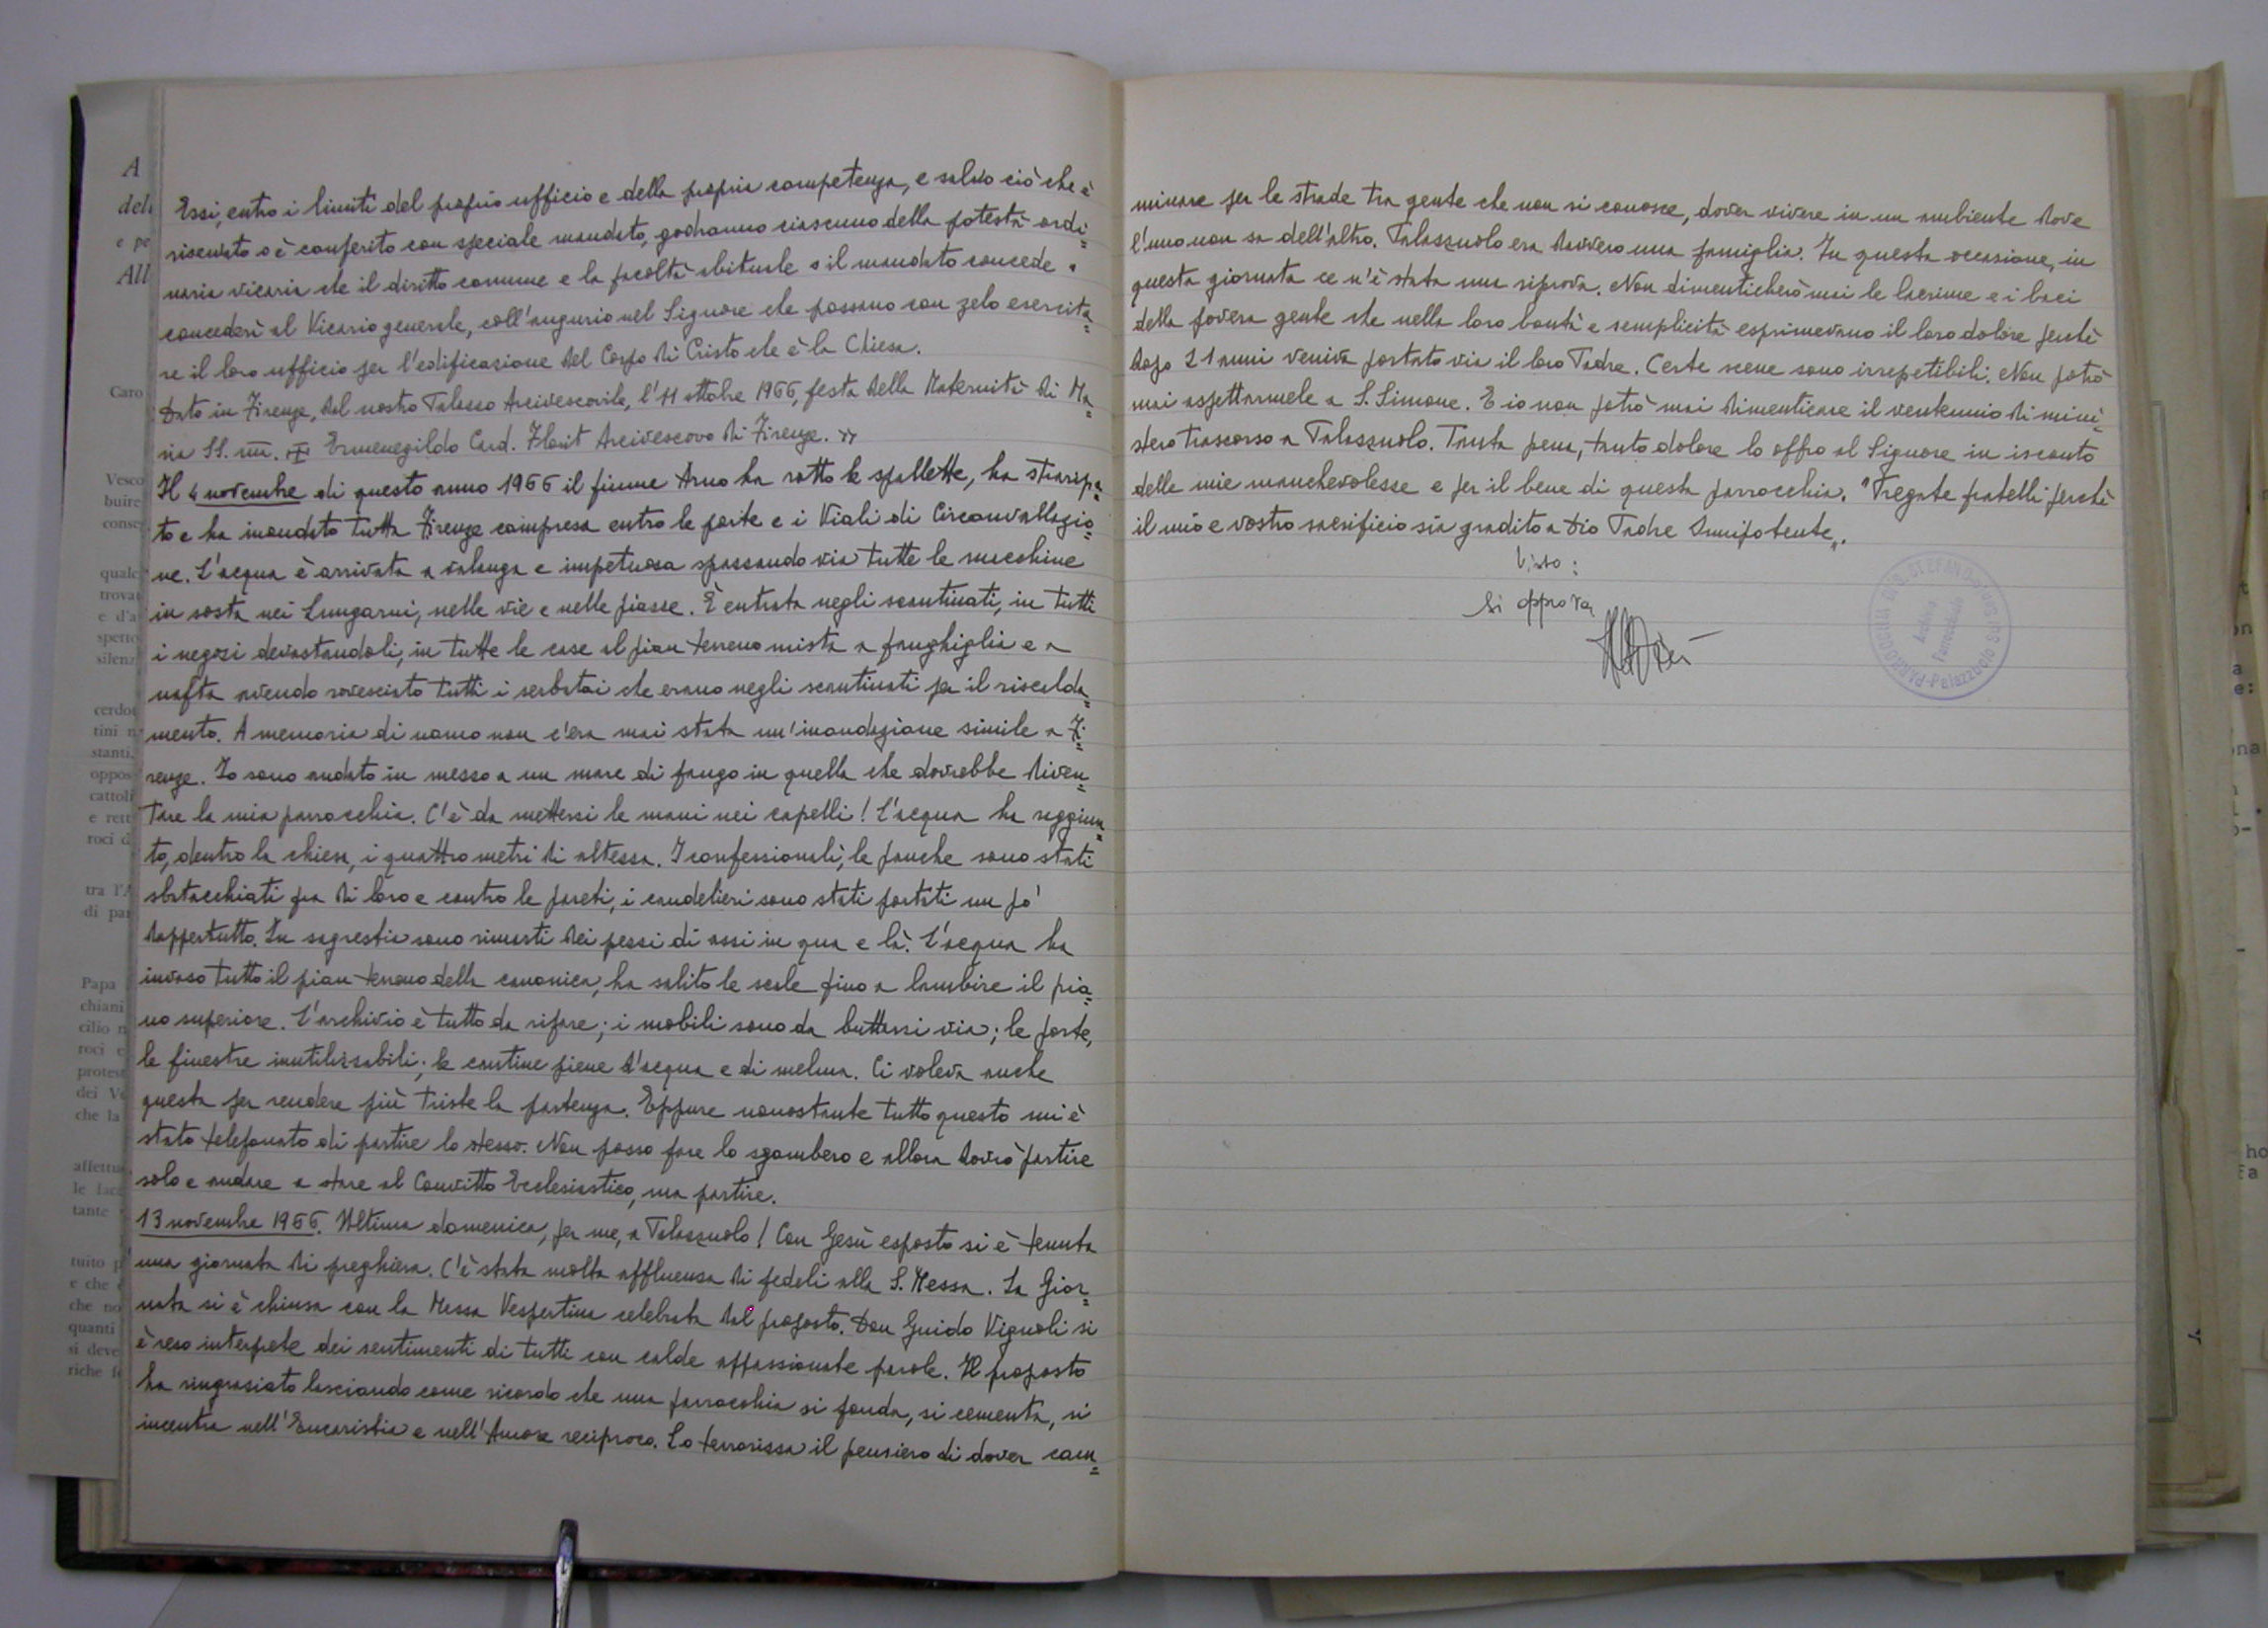 Essi, entro i limiti del proprio ufficio e della propria competenza, e salvo ciò che è
riservato o è conferito con speciale mandato, godranno ciascuno della potestà ordi=
naria vicaria che il diritto comune e la facoltà abituale o il mandato concede o
concederà al Vicario generale, coll'augurio nel Signore che possano con zelo esercita=
re il loro ufficio per l'edificazione del Corpo di Cristo che è la Chiesa.
Dato in Firenze, dal nostro Palazzo Arcivescovile, l'11 ottobre 1966, festa della Maternità di Ma=
ria SS.ma. + Ermenegildo Card. Florit Arcivescovo di Firenze. »
Il 4 novembre di questo anno 1966 il fiume Arno ha rotto le spallette, ha straripa=
to e ha inondato tutta Firenze compresa entro le porte e i Viali di Circonvallazio=
ne. L'acqua è arrivata a valanga e impetuosa spazzando via tutte le macchine
in sosta nei Lungarni, nelle vie e nelle piazze. È entrata negli scantinati, in tutti
i negozi devastandoli, in tutte le case al pian terreno mista a fanghiglia e a
nafta avendo rovesciato tutti i serbatoi che erano negli scantinati per il riscalda=
mento. A memoria di uomo non c'era mai stata un'inondazione simile a Fi=
renze. Io sono andato in mezzo a un mare di fango in quella che dovrebbe diven=
tare la mia parrocchia. C'è da mettersi le mani nei capelli! L'acqua ha raggiun=
to, dentro la chiesa, i quattro metri di altezza. I confessionali, le panche sono stati
sbatacchiati fra di loro e contro le pareti, i candelieri sono stati portati un pò
dappertutto. In sagrestia sono rimasti dei pezzi di assi in qua e là. L'acqua ha
invaso tutto il pian terreno della canonica, ha salito le scale fino a lambire il pia=
no superiore. L'archivio è tutto da rifare; i mobili sono da buttarsi via; le porte,
le finestre inutilizzabili; le cantine piene d'acqua e di melma. Ci voleva anche
questa per rendere più triste la partenza. Eppure nonostante tutto questo mi è
stato telefonato di partire lo stesso. Non posso fare lo sgombero e allora dovrò partire
solo e andare a stare al Convitto Ecclesiastico, ma partire.
13 novembre 1966. Ultima domenica, per me, a Palazzuolo! Con Gesù esposto si è tenuta
una giornata di preghiera. C'è stata molta affluenza di fedeli alla S. Messa. La Gior=
nata si è chiusa con la Messa Vespertina celebrata dal proposto. Don Guido Vignoli si
è reso interprete dei sentimenti di tutti con calde appassionate parole. Il proposto
ha ringraziato lasciando come ricordo che una parrocchia si fonda, si cementa, si
incentra nell'Eucaristia e nell'Amore reciproco. Lo terrorizza il pensiero di dover cam=
minare per le strade tra gente che non si conosce, dover vivere in un ambiente dove
l'uno non sa dell'altro. Palazzuolo era davvero una famiglia. In questa occasione, in
questa giornata ce n'è stata una riprova. Non dimenticherò mai le lacrime e i baci
della povera gente che nella loro bontà e semplicità esprimevano il loro dolore perchè
dopo 21 anni veniva portato via il loro Padre. Certe scene sono irrepetibili. Non potrò
mai aspettarmele a S. Simone. E io non potrò mai dimenticare il ventennio di mini=
stero trascorso a Palazzuolo. Tanta pena, tanto dolore lo offro al Signore in isconto
delle mie manchevolezze e per il bene di questa parrocchia. "Pregate fratelli perchè
il mio e vostro sacrificio sia gradito a Dio Padre Onnipotente".
Visto:
si approva
PARROCCHIA DI S. STEFANO
Palazzuolo sul Senio
Archivio
Parrocchiale
A
e pe
All
Caro
Vesco
buire
quale
trovat
e d'a
spetto
silenz
cerdot
tini n
stanti.
oppos
cattoli
e rett
roci d
tra l'A
di par
Papa
chiani
cilio n
roci e
protest
dei Ve
che la
affettu
tante
tuito p
e che
che no
quanti
si deve